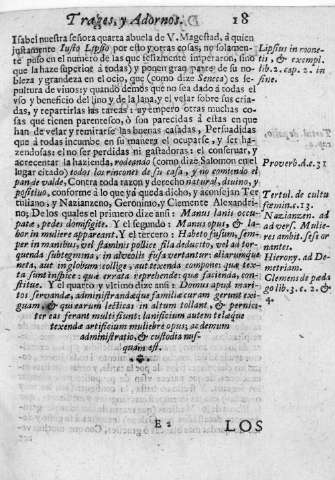 Trages, y Adornos. 18
Isabel nuestra señora quarta abuela de V. Magestad, á quien
justamente Iusto Lipsio por esto y otras cosas, no solamen-
te puso en el numero de las que felizmente imperaron, sino
que la haze superior á todas) y ponen gran parte de su no-
bleza y grandeza en el ocio, que (como dize Seneca) es se-
pultura de viuos: y quando demos que no sea dado á todas el
vso y beneficio del lino y de la lana, y el velar sobre sus cria-
das, y repartirlas las tareas: ay empero otras muchas co-
sas que tienen parentesco, ò son parecidas á estas en que
han de velar y remirarse las buenas casadas, Persuadidas
que à todas incumbe en su manera el ocuparse, y ser ha-
zendosas: el no ser perdidas ni gastadoras: el conseruar, y
acrecentar la hazienda, rodeando (como dize Salomon en el
lugar citado) todos los rincones de su casa, y no comiendo el
pan de valde, Contra toda razon y derecho natural, diuino, y
positiuo, conforme à lo que ya queda dicho, y aconsejan Ter
tuliano, y Nazianzeno, Geronimo, y Clemente Alexandri-
no; De los quales el primero dize ansi: Manus lanis occu-
pate, pedes domi figite. Y el segundo: Manus opus, & la-
bor muliere apparcant. Y el tercero: Habeto fusum, sem-
per in manibus, vel staminis pollice fila deducito, vel ad tor-
quenda subtegmina, in alveolis fusa vertantur: aliarumque
neta, aut in globum collige, aut texenda compone: que tex-
ta sunt inspice: que errata reprehende: que facienda, con-
stitue. Y el quarto y vltimo dize ansi: Domus apud mari-
tos servandæ, administrandæque familiæ curam gerunt exi-
guam, & qui earum lecticas in altum tollant, & pernici-
ter eas ferant multi sunt: lanificium autem telæque
texendæ artificium muliebre opus, ac domum
administratio, & custodia nus-
quam est.
Lipsius in mone-
tis, & exempl.
lib. 2. cap. 2. in
fine.
Proverb. A.c. 31
Tertul. de cultu
fœmin. c. 13.
Nazianzen. ad
advers. Mulie-
res ambit. sese or
nantes.
Hieron. ad De-
metriam.
Clemens de peda
go lib. 3. c. 2. &
4.
E 2 LOS